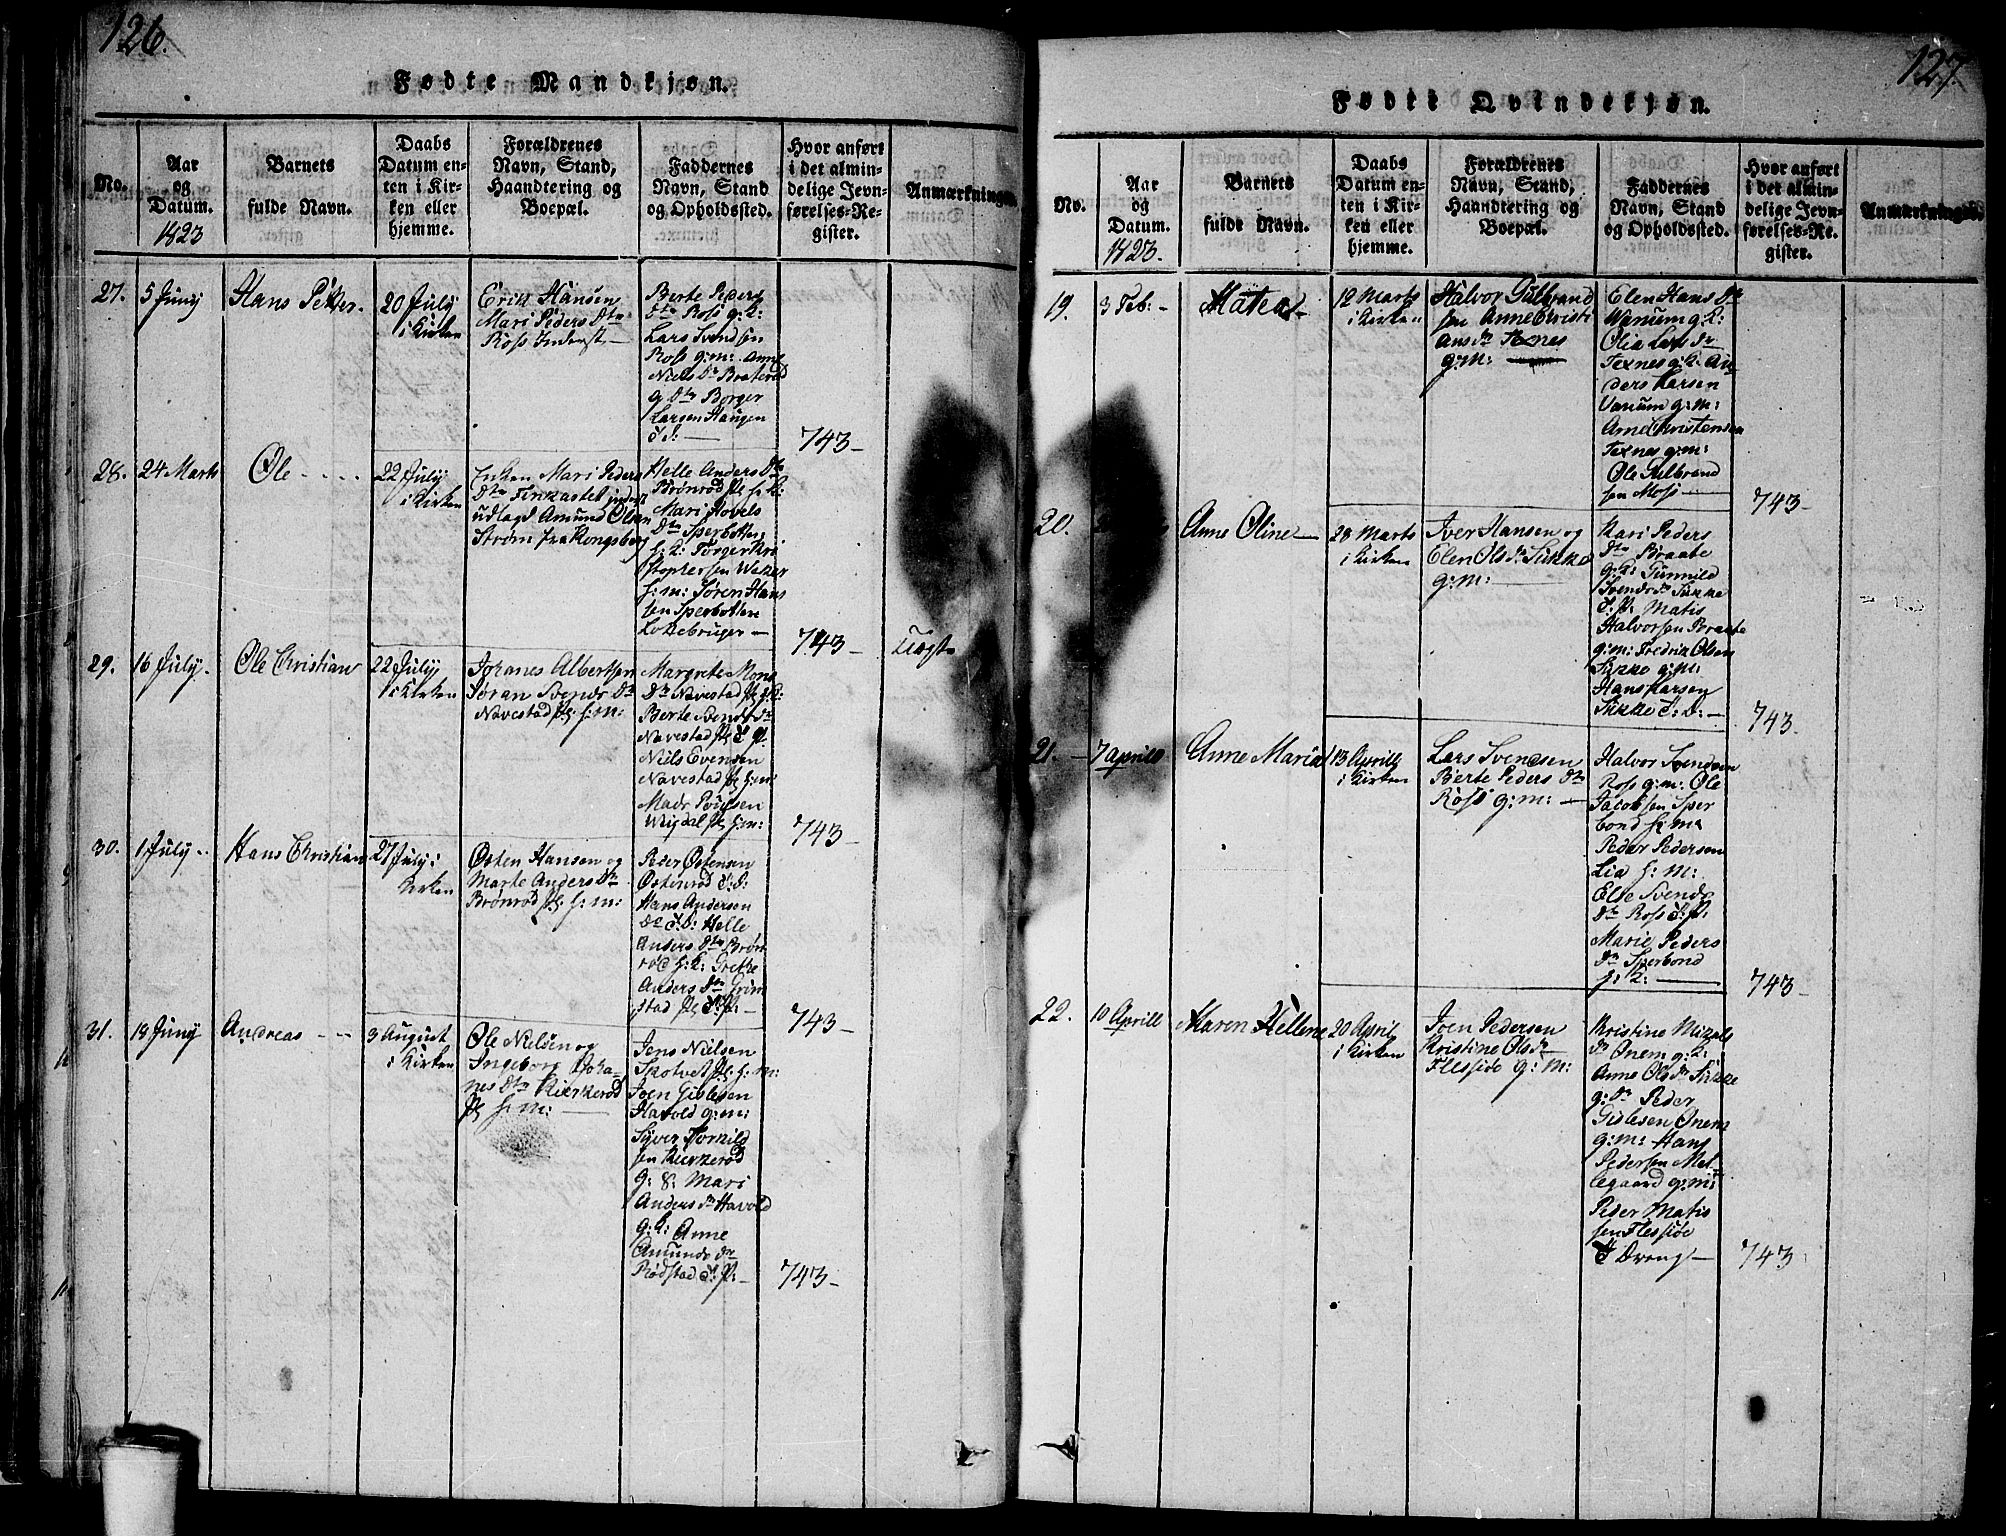 126.
Fødte Mandkjøn.
No.
Aar
og
Datum.
1823
Barnets
fulde Navn.
Daabs
Datum en-
ten i Kir-
ken eller
hjemme.
Forældrenes
Navn, Stand,
Haandtering og
Boepæl.
Faddernes
Navn, Stand
og Opholdssted.
Hvor anført
i det almin-
delige Jevn-
førelses-Re-
gister.
Anmærkninger.
27.
5 Juny
Hans Petter.
20 July
i Kirken
Erik Hansen
Mari Peders Dtr
Ross Inderst
Berte Peders
Dtr Ross g: K:
Lars Svendsen
Ross g: m: Anne
Niels Dtr Braterød
g Dtr Borger
Larsen Haugen
743
28.
24 Marts
Ole
22 July
i Kirken
Enken Mari Peders
Dtr Finkastet
udlagd Amund Olsen
Strøm fra Kongsberg
Helle Anders Dtr
Brønrød
Mari Hovels
Dtr Sperbotten
Torger Kri
stophersen
Søren Hans
sen Sperbotten
743
29.
16 July.
Ole Christian
22 July
i Kirken
Johanes Albertsen
Joran Svends Dtr
Navestad pl: h: m:
Margrete Mons
Dtr Navestad
Berte Svends Dtr
Navestad
Niels Evensen
Navestad pl h: m:
Mads Poulsen
Wigdal pl h: m:
743
30.
1 July.
Hans Christian
27 July i
Kirken
Østen Hansen og
Marte Anders Dtr
Brønrød pl: h: m:
Peder Østensen
Østenrød
Hans Andersen
Helle
Anders Dtr Brøn
rød h: K: Grethe
Anders Dtr Grim
stad
743
31.
19 Juny
Andreas
3 August
i Kirken
Ole Nielsen og
Ingeborg Joha-
nes Dtr Kierkerød
pl h: m:
Jens Nielsen
Skotvet pl: h: m:
Joen Gislesen
Havold g: m:
Syver Tornild
sen Kierkerød
g: S: Mari
Anders Dtr Havold
g: K: Anne
Amunds Dtr
Rødstad
743
127.
Fødte Qvindekjøn.
No.
Aar
og
Datum.
1823.
Barnets
fulde Navn.
Daabs
Datum en-
ten i Kir-
ken eller
hjemme.
Forældrenes
Navn, Stand,
Haandtering og
Boepæl.
Faddernes
Navn, Stand
og Opholdssted.
Hvor anført
i det almin-
delige Jevn-
førelses-Re-
gister.
Anmærkninger.
19.
3 Feb:
Matea
12 Marts
i Kirken
Halvor Gulbrand
sen Anne Christi
ans Dr Texnes
g: M:
Elen Hans Dtr
Wanum g: K:
Olia Lars Dr
Texnes g: K: An
ders Larsen
Vanum g: m:
Arne Christensen
Texnes g: m:
Ole Gulbrand
sen Moss
743
20.
Anne Oline
28 Marts
i Kirken
Iver Hansen og
Elen Ols Dr Sukke
g: M:
Kari Peders
Dtr Braate
g: K: Gunnild
Svends Dr Sukke
Matis
Halvorsen Braate
g: m: Fredrik Olsen
Sukke g: M:
Hans Larsen
Sukke
743.
21.
7 Aprill
Anne Maria
13 Aprill
i Kirken
Lars Svendsen
Berte Peders Dtr
Ross g: m:
Halvor Svendsen
Ross g: m: Ole
Jacobsen Sper
bond h: m:
Peder Pedersen
Lia h: m:
Else Svends
Dtr Ross
Marie Peders
Dtr Sperbond
h: K:
743
22.
10 Aprill
Maren Hellene
20 April
i Kirken
Joen Pedersen
Kristine Ols Dr
Flessiøe g: M:
Kristine
Dtr Onem g: K:
Anne Ols Dr Sukke
g: Dtr Peder
Gislesen Onem
g: m: Hans
Pedersen Mel
legaard g: m:
Peder Matis
sen Flessiøe
Dreng
743